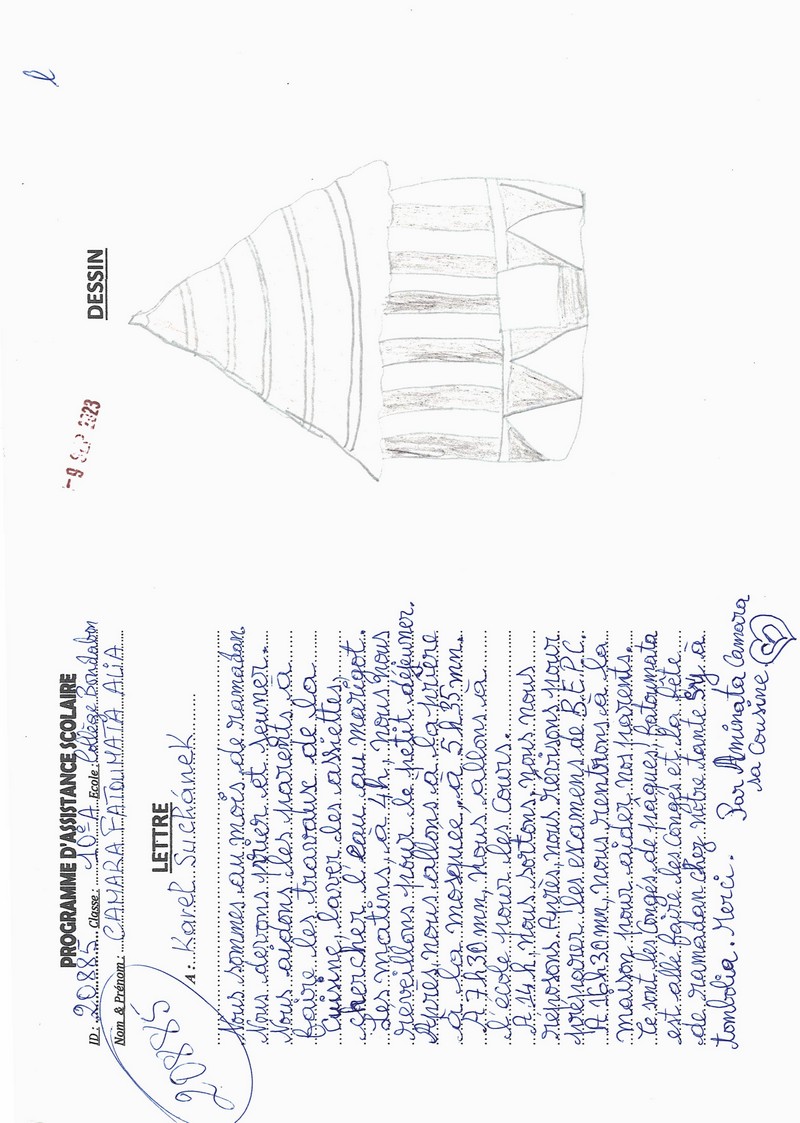 PROGRAMME D'ASSISTANCE SCOLAIRE
ID : 20885 Classe : 10e A Ecole : Collège
Nom & Prénom : CAMARA FATOUMATA ALIA
20885
LETTRE
A : Karel Suchánek
Nous sommes au mois de ramadan
Nous devons prier et jeuner.
Nous aidons les parents à
faire les travaux de la
Cuisine, laver les assiettes,
chercher l'eau au marigot.
Les matins, à 4h, nous nous
reveillons pour le petit déjeuner.
Après nous allons à la prière
à la mosquée, à 5h35mn.
A 7h30mn, nous allons à
l'école pour les cours.
A 14h, nous sortons, nous nous
réposons. Après nous revisons pour
préparer les examens de B.E.P.C.
A 16h30mn, nous rentrons à la
maison pour aider nos parents.
Ce sont les Congés de pâques, fatoumata
est allé faire les Congés et la fête
de ramadan chez notre tante Sny à
tombolia. Merci.
Par Aminata Camara
sa cousine.
DESSIN
-9 SEP 2023